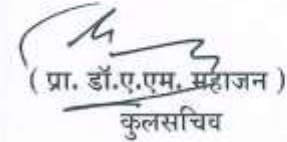 ( प्रा. डॉ.ए.एम. महाजन )
कुलसचिव